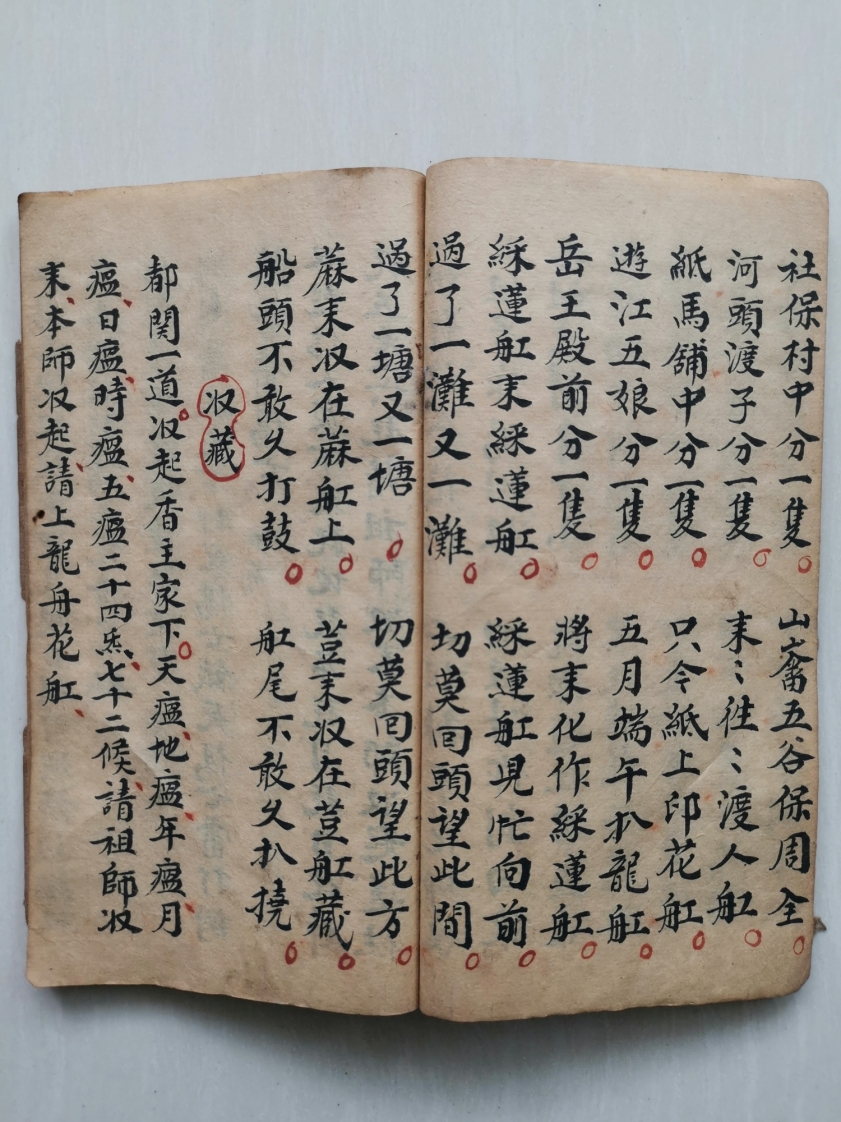 社保村中分一隻 山畬五谷保周全
河頭渡子分一隻 来〻往〻渡人舡
紙馬舖中分一隻 只今紙上印花舡
遊江五娘分一隻 五月端午扒龍舡
岳王殿前分一隻 將来化作綵蓮舡
綵蓮舡来綵蓮舡 綵蓮舡児忙向前
過了一灘又一灘 切莫囘頭望此間
過了一塘又一塘 切莫囘頭望此方
蔴来収在蔴舡上 荳来収在荳舡藏
船頭不敢久打鼓 舡尾不敢久扒撓
収藏
都関一道収起香主家下天瘟地瘟年瘟月
瘟日瘟時瘟五瘟二十四炁七十二候請祖師収
来本師収起請上龍舟花舡